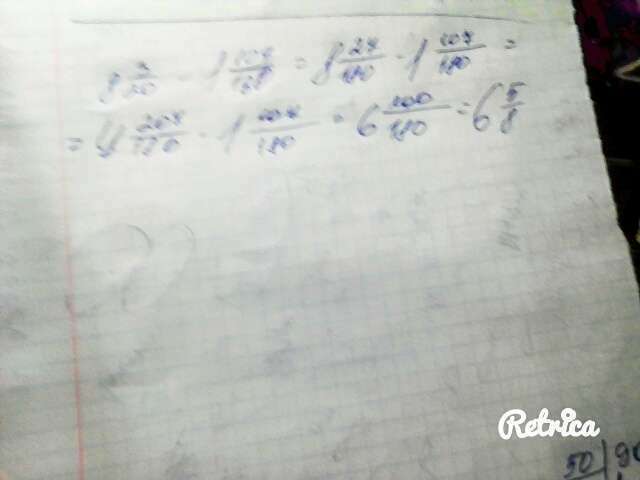 8 3/20 - 1 107/180 = 8 27/180 - 1 107/180 =
= 7 207/180 - 1 107/180 = 6 100/180 = 6 5/8
Retrica
50 90